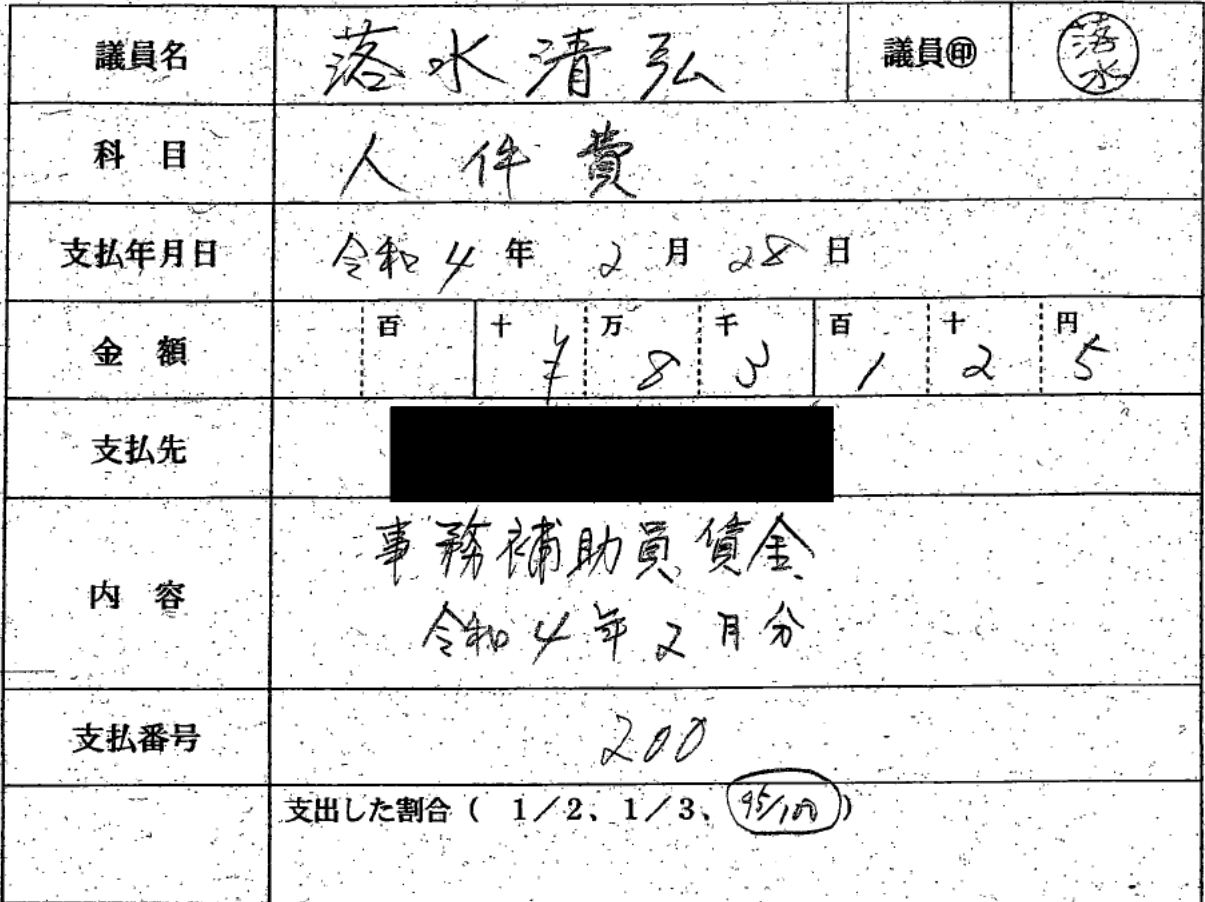 議員名 落水清弘 議員㊞ 落水
科 目 人件費
支払年月日 令和4年 2月28日
金 額 百 十 万 千 百 十 円
¥83125
支払先
内 容 事務補助員賃金
令和4年2月分
支払番号 200
支出した割合( 1/2、1/3、95/100)